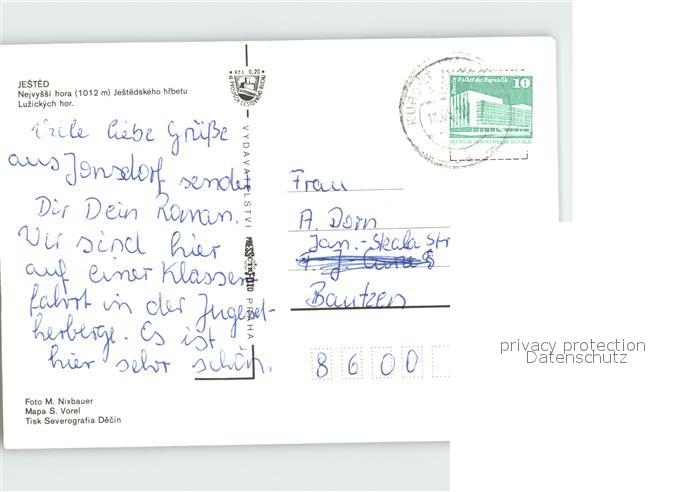 JEŠTĚD
Nejvyšší hora (1012 m) Ještědského hřbetu
Lužických hor.
Kčs 0,20
Viele liebe Grüße
aus Jonsdorf sendet
Dir Dein Roman.
Wir sind hier
auf einer Klassen
fahrt in der Jugend-
herberge. Es ist
hier sehr schön.
VYDAVATELSTVÍ
PRESSFOTO
PRAHA
KURORT
10
Frau
A. Dorn
Jan.-Skala Str
Bautzen
8600
Foto M. Nixbauer
Mapa S. Vorel
Tisk Severografia Děčín
privacy protection
Datenschutz